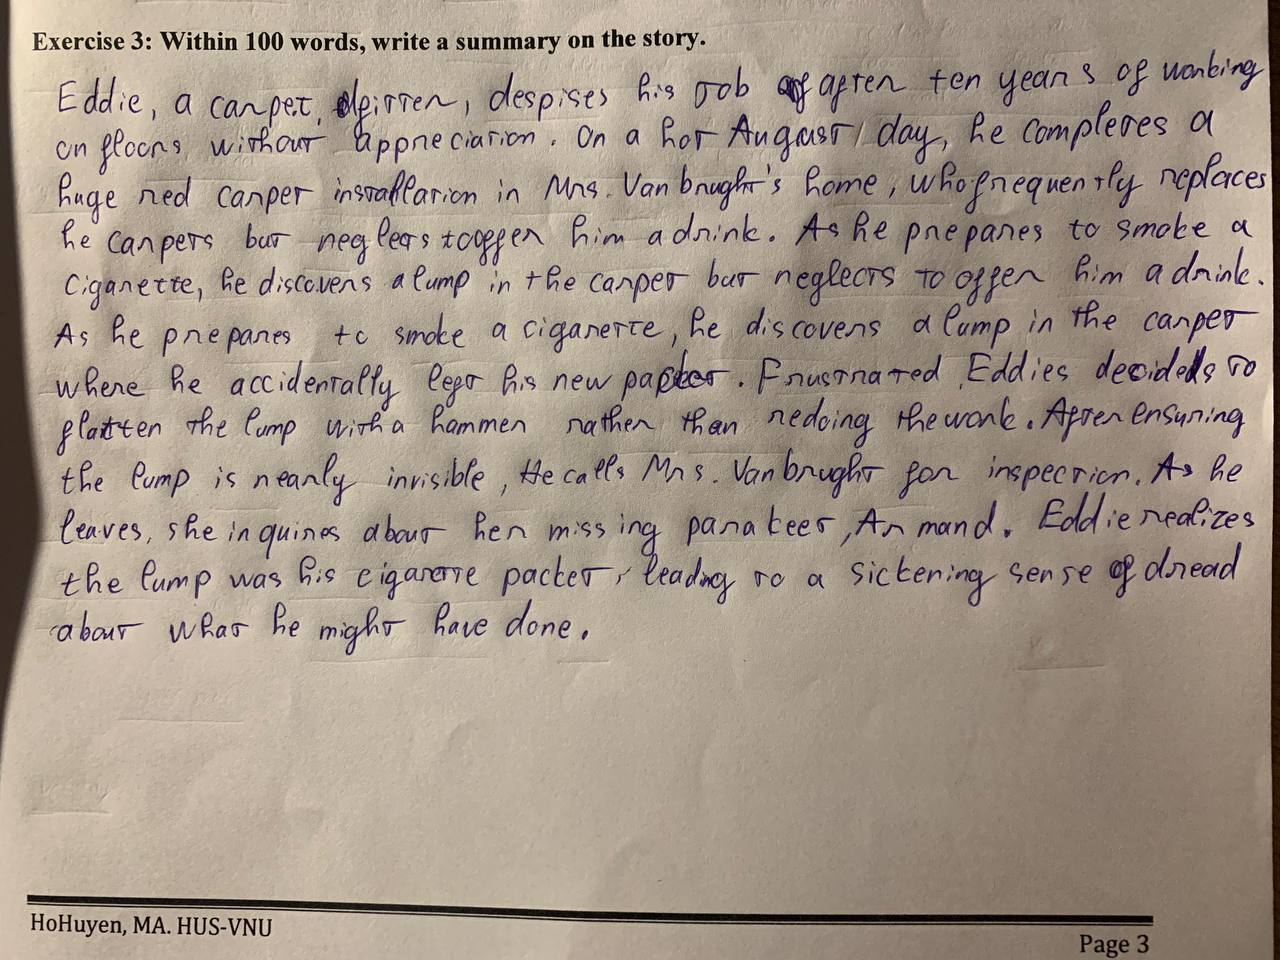 Exercise 3: Within 100 words, write a summary on the story.
Eddie, a carpet fitter, despises his job after ten years of working
on floors without appreciation. On a hot August day, he completes a
huge red carpet installation in Mrs. Vanbrught's home, who frequently replaces
he carpets but neglects to offer him a drink. As he prepares to smoke a
cigarette, he discovers a lump in the carpet but neglects to offer him a drink.
As he prepares to smoke a cigarette, he discovers a lump in the carpet
where he accidentally left his new packet. Frustrated, Eddies decides to
flatten the lump with a hammer rather than redoing the work. After ensuring
the lump is nearly invisible, He calls Mrs. Vanbrught for inspection. As he
leaves, she inquires about her missing parakeet, Armand. Eddie realizes
the lump was his cigarette packet, leading to a sickening sense of dread
about what he might have done.
HoHuyen, MA. HUS-VNU
Page 3